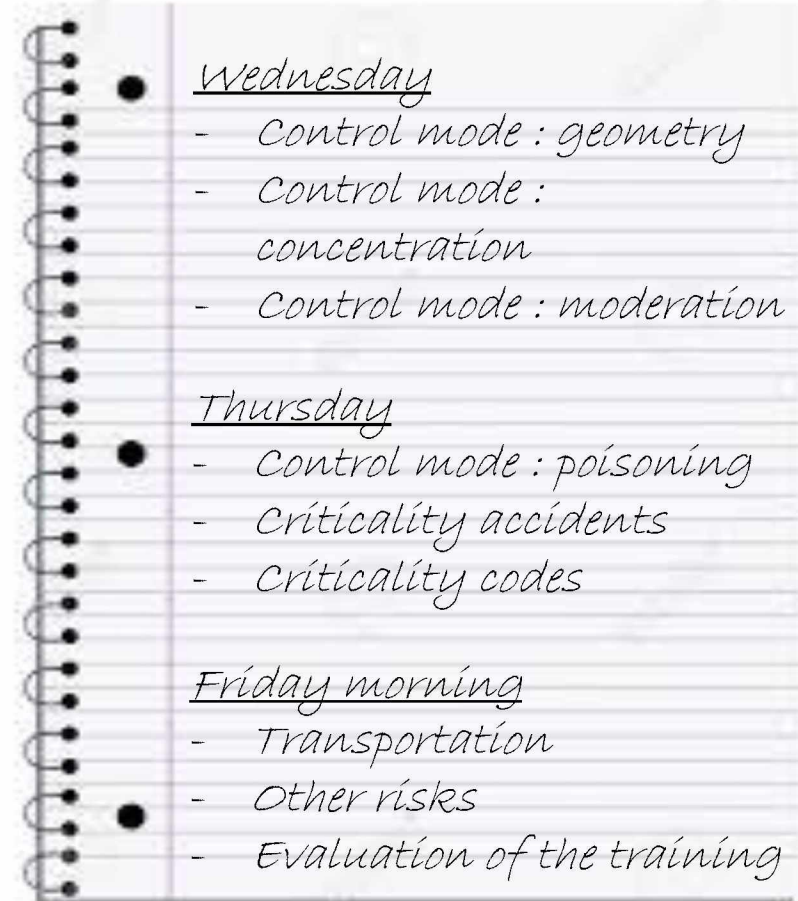 Wednesday
- Control mode : geometry
- Control mode :
concentration
- Control mode : moderation
Thursday
- Control mode : poisoning
- Criticality accidents
- Criticality codes
Friday morning
- Transportation
- Other risks
- Evaluation of the training